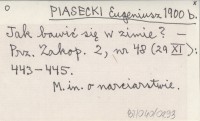 PIASECKI Eugeniusz 1900 b.
Jak bawić się w zimie? –
Prz. Zakop. 2, nr 48 (29 XI):
443–445.
M.in. o narciarstwie.